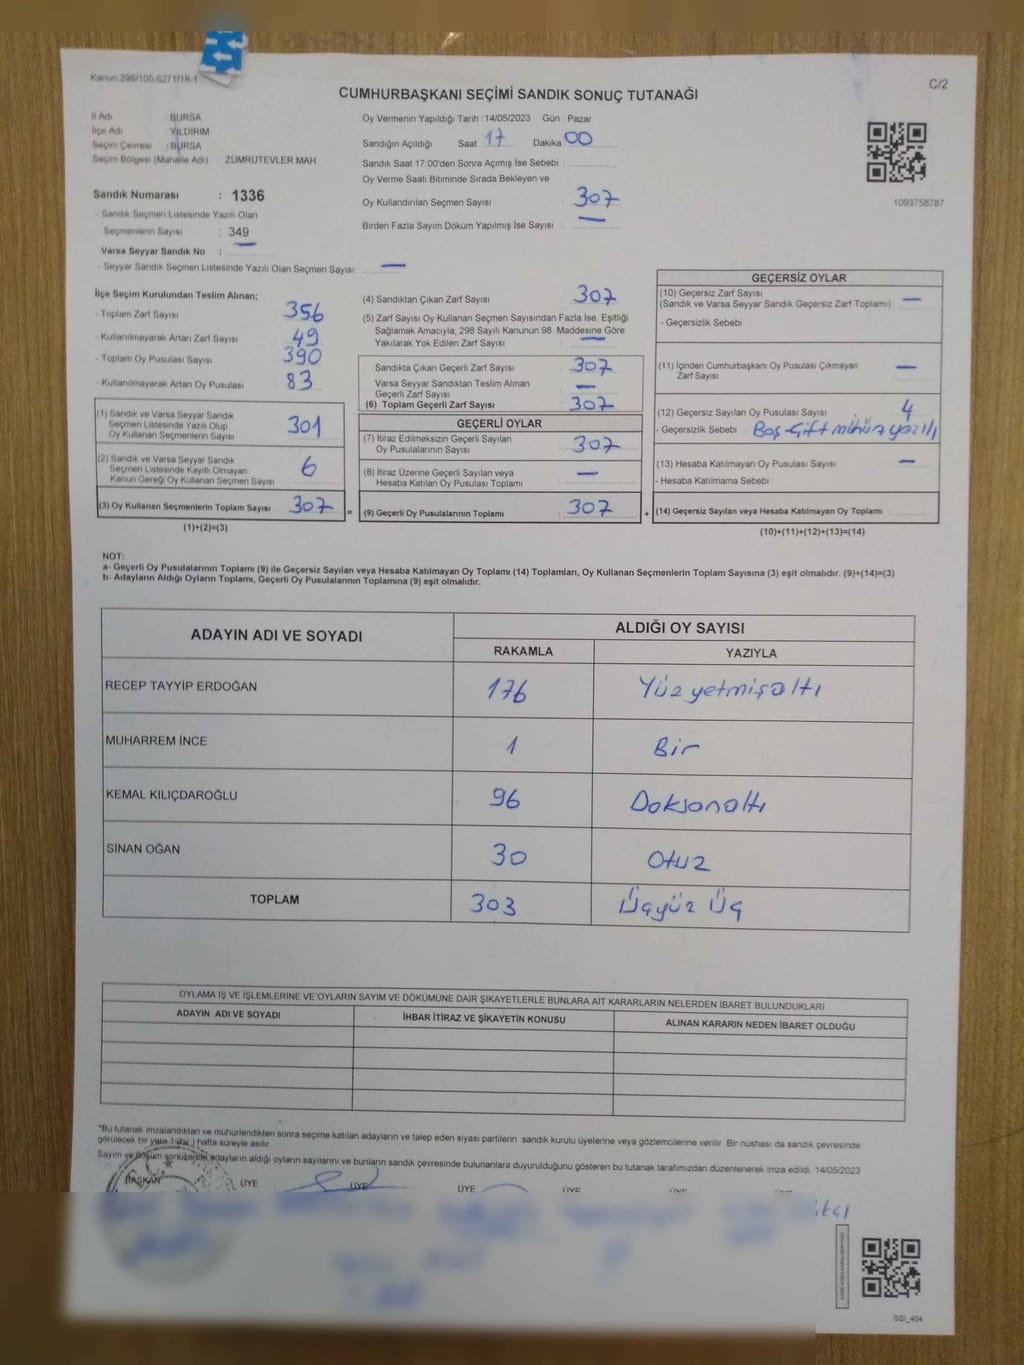 Kanun:298/105 6271/18-1
C/2
CUMHURBAŞKANI SEÇİMİ SANDIK SONUÇ TUTANAĞI
İl Adı BURSA
İlçe Adı YILDIRIM
Seçim Çevresi : BURSA
Seçim Bölgesi (Mahalle Adı) ZÜMRÜTEVLER MAH
Sandık Numarası : 1336
- Sandık Seçmen Listesinde Yazılı Olan
Seçmenlerin Sayısı : 349
Varsa Seyyar Sandık No : —
- Seyyar Sandık Seçmen Listesinde Yazılı Olan Seçmen Sayısı —
Oy Vermenin Yapıldığı Tarih : 14/05/2023 Gün : Pazar
Sandığın Açıldığı Saat 17 Dakika 00
Sandık Saat 17:00'den Sonra Açımış İse Sebebi :
Oy Verme Saati Bitiminde Sırada Bekleyen ve
Oy Kullandırılan Seçmen Sayısı 307
Birden Fazla Sayım Döküm Yapılmış İse Sayısı —
1093758787
İlçe Seçim Kurulundan Teslim Alınan;
- Toplam Zarf Sayısı 356
- Kullanılmayarak Artan Zarf Sayısı 49
- Toplam Oy Pusulası Sayısı 390
- Kullanılmayarak Artan Oy Pusulası 83
(1) Sandık ve Varsa Seyyar Sandık
Seçmen Listesinde Yazılı Olup
Oy Kullanan Seçmenlerin Sayısı 301
(2) Sandık ve Varsa Seyyar Sandık
Seçmen Listesinde Kayıtlı Olmayan
Kanun Gereği Oy Kullanan Seçmen Sayısı 6
(3) Oy Kullanan Seçmenlerin Toplam Sayısı 307 =
(1)+(2)=(3)
(4) Sandıktan Çıkan Zarf Sayısı 307
(5) Zarf Sayısı Oy Kullanan Seçmen Sayısından Fazla İse, Eşitliği
Sağlamak Amacıyla, 298 Sayılı Kanunun 98. Maddesine Göre
Yakılarak Yok Edilen Zarf Sayısı —
Sandıkta Çıkan Geçerli Zarf Sayısı 307
Varsa Seyyar Sandıktan Teslim Alınan
Geçerli Zarf Sayısı —
(6) Toplam Geçerli Zarf Sayısı 307
GEÇERLİ OYLAR
(7) İtiraz Edilmeksizin Geçerli Sayılan
Oy Pusulalarının Sayısı 307
(8) İtiraz Üzerine Geçerli Sayılan veya
Hesaba Katılan Oy Pusulası Toplamı —
(9) Geçerli Oy Pusulalarının Toplamı 307 +
GEÇERSİZ OYLAR
(10) Geçersiz Zarf Sayısı
(Sandık ve Varsa Seyyar Sandık Geçersiz Zarf Toplamı) —
- Geçersizlik Sebebi
(11) İçinden Cumhurbaşkanı Oy Pusulası Çıkmayan
Zarf Sayısı —
(12) Geçersiz Sayılan Oy Pusulası Sayısı 4
- Geçersizlik Sebebi Boş Çift mühür yazılı
(13) Hesaba Katılmayan Oy Pusulası Sayısı —
- Hesaba Katılmama Sebebi :
(14) Geçersiz Sayılan veya Hesaba Katılmayan Oy Toplamı
(10)+(11)+(12)+(13)=(14)
NOT:
a- Geçerli Oy Pusulalarının Toplamı (9) ile Geçersiz Sayılan veya Hesaba Katılmayan Oy Toplamı (14) Toplamları, Oy Kullanan Seçmenlerin Toplam Sayısına (3) eşit olmalıdır. (9)+(14)=(3)
b- Adayların Aldığı Oyların Toplamı, Geçerli Oy Pusulalarının Toplamına (9) eşit olmalıdır.
ADAYIN ADI VE SOYADI
ALDIĞI OY SAYISI
RAKAMLA YAZIYLA
RECEP TAYYİP ERDOĞAN 176 Yüz yetmiş altı
MUHARREM İNCE 1 Bir
KEMAL KILIÇDAROĞLU 96 Doksanaltı
SİNAN OĞAN 30 Otuz
TOPLAM 303 Üçyüz Üç
OYLAMA İŞ VE İŞLEMLERİNE VE OYLARIN SAYIM VE DÖKÜMÜNE DAİR ŞİKAYETLERLE BUNLARA AİT KARARLARIN NELERDEN İBARET BULUNDUKLARI
ADAYIN ADI VE SOYADI İHBAR İTİRAZ VE ŞİKAYETİN KONUSU ALINAN KARARIN NEDEN İBARET OLDUĞU
*Bu tutanak imzalandıktan ve mühürlendikten sonra seçime katılan adayların ve talep eden siyasi partilerin sandık kurulu üyelerine veya gözlemcilerine verilir. Bir nüshası da sandık çevresinde
görülecek bir yere 1 (bir) hafta süreyle asılır
Sayım ve döküm sonucunda adayların aldığı oyların sayılarını ve bunların sandık çevresinde bulunanlara duyurulduğunu gösteren bu tutanak tarafımızdan düzenlenerek imza edildi. 14/05/2023
BAŞKAN ÜYE ÜYE ÜYE ÜYE ÜYE ÜYE
SSI_404